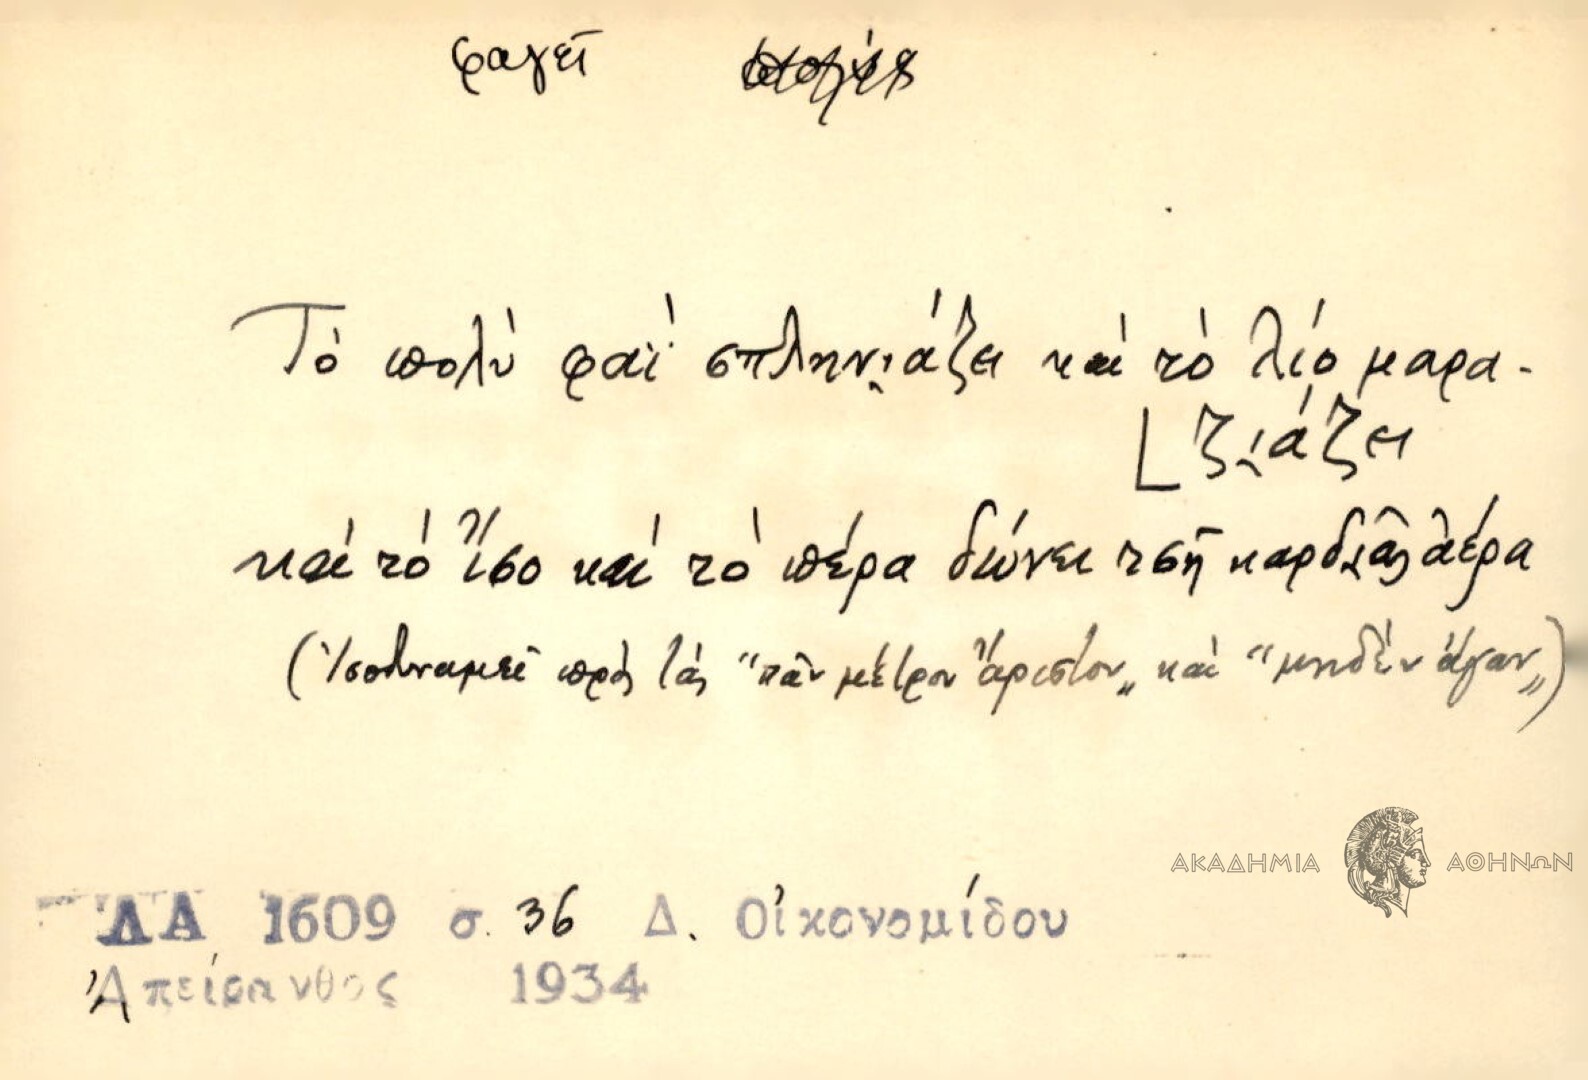 φαγεῖ
Τὸ πολὺ φαῒ σπληνι̮άζει καὶ τὸ λίο μαρα-
τζι̮άζει
καὶ τὸ ἴσο καὶ τὸ πέρα δώνει τσῆ καρδι̮ᾶς ἀέρα
(Ἰσοδυναμεῖ πρὸς τὰς "πᾶν μέτρον ἄριστον„ καὶ "μηδὲν ἄγαν„)
ΑΚΑΔΗΜΙΑ ΑΘΗΝΩΝ
ΛΑ 1609 σ. 36 Δ. Οἰκονομίδου
Ἀπείρανθος 1934